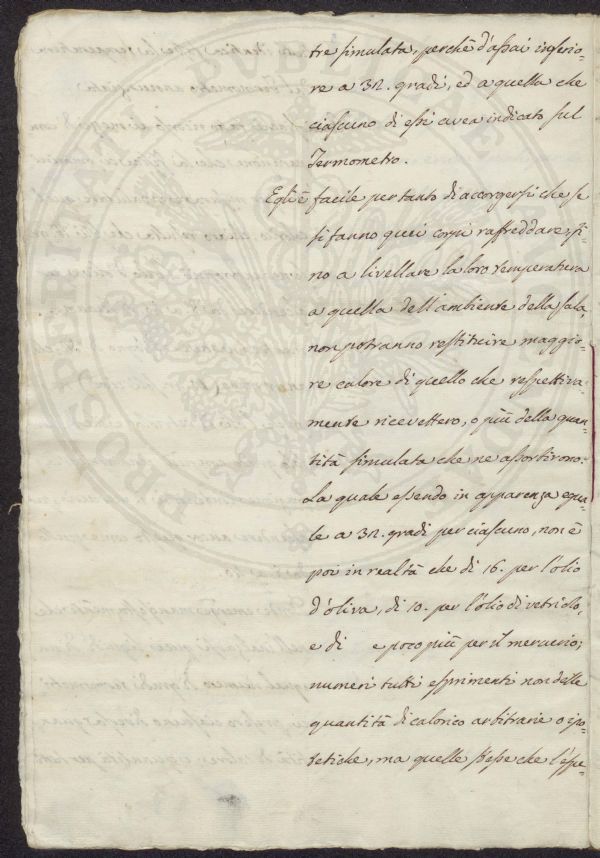 tre simulata, perchè d'assai inferio-
re a 32. gradi, ed a quella che
ciascuno di essi avea indicato sul
Termometro.
Egli è facile pertanto di accorgersi che se
si fanno quei corpi raffreddare si-
no a livellare la loro temperatura
a quella dell'ambiente della sala,
non potranno restituire maggio-
re calore di quello che respettiva-
mente ricevettero, o più della quan-
tità simulata che ne assortirono:
La quale essendo in apparenza egua-
le a 32. gradi per ciascuno, non è
poi in realtà che di 16. per l'olio
d'oliva, di 10. per l'olio di vetriolo,
e di e poco più per il mercurio;
numeri tutti esprimenti non delle
quantità di calorico arbitrarie o ipo-
tetiche, ma quelle stesse che l'espe-
PROSPERITATI PUBLICAE